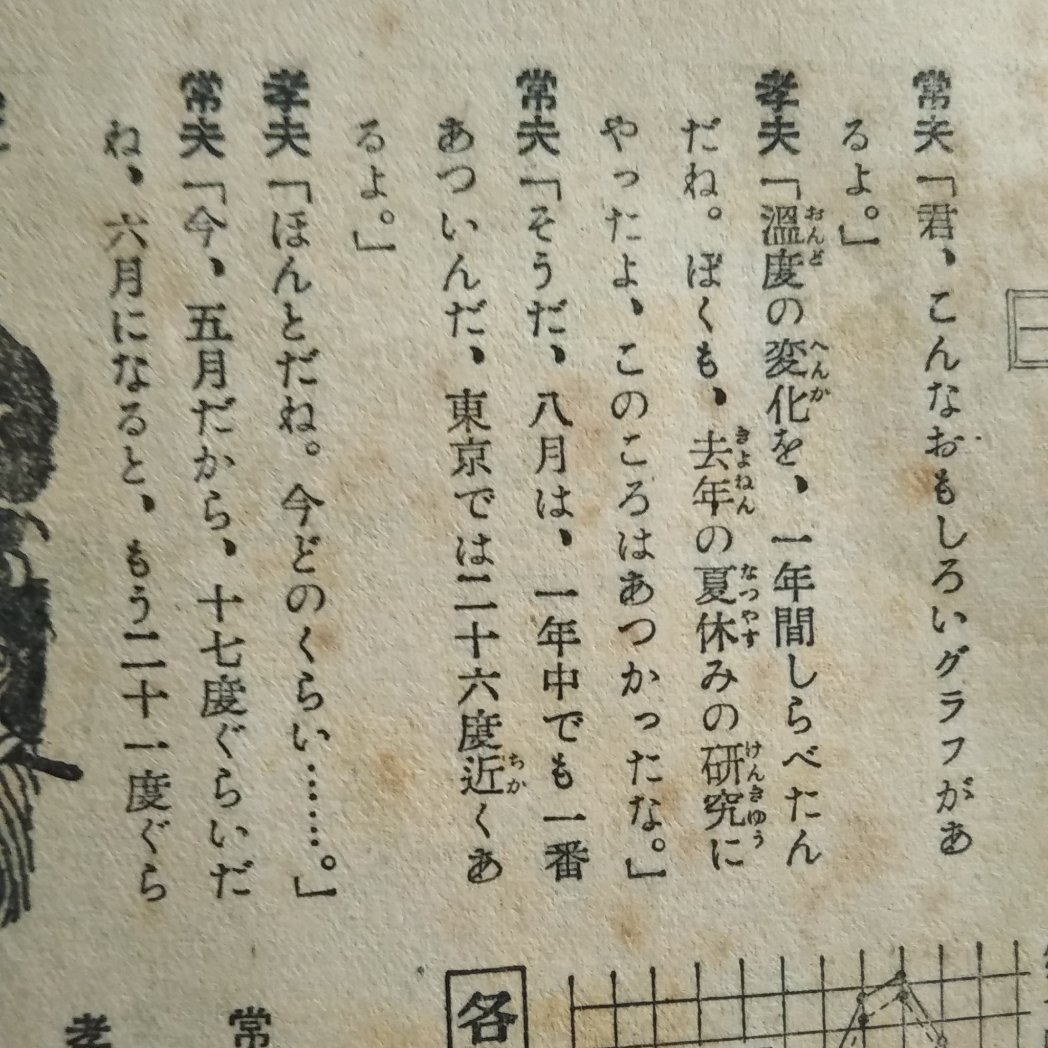 常夫「君、こんなおもしろいグラフがあ
るよ。」
孝夫「溫度の変化を、一年間しらべたん
だね。ぼくも、去年の夏休みの研究に
やったよ、このころはあつかったな。」
常夫「そうだ、八月は、一年中でも一番
あついんだ、東京では二十六度近くあ
るよ。」
孝夫「ほんとだね。今どのくらい……。」
常夫「今、五月だから、十七度ぐらいだ
ね、六月になると、もう二十一度ぐら
各
常
孝